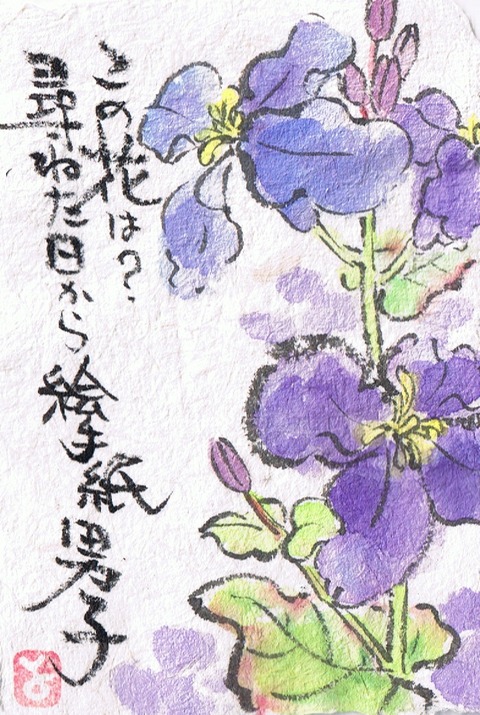 この花は?
尋ねた日から絵手紙男子